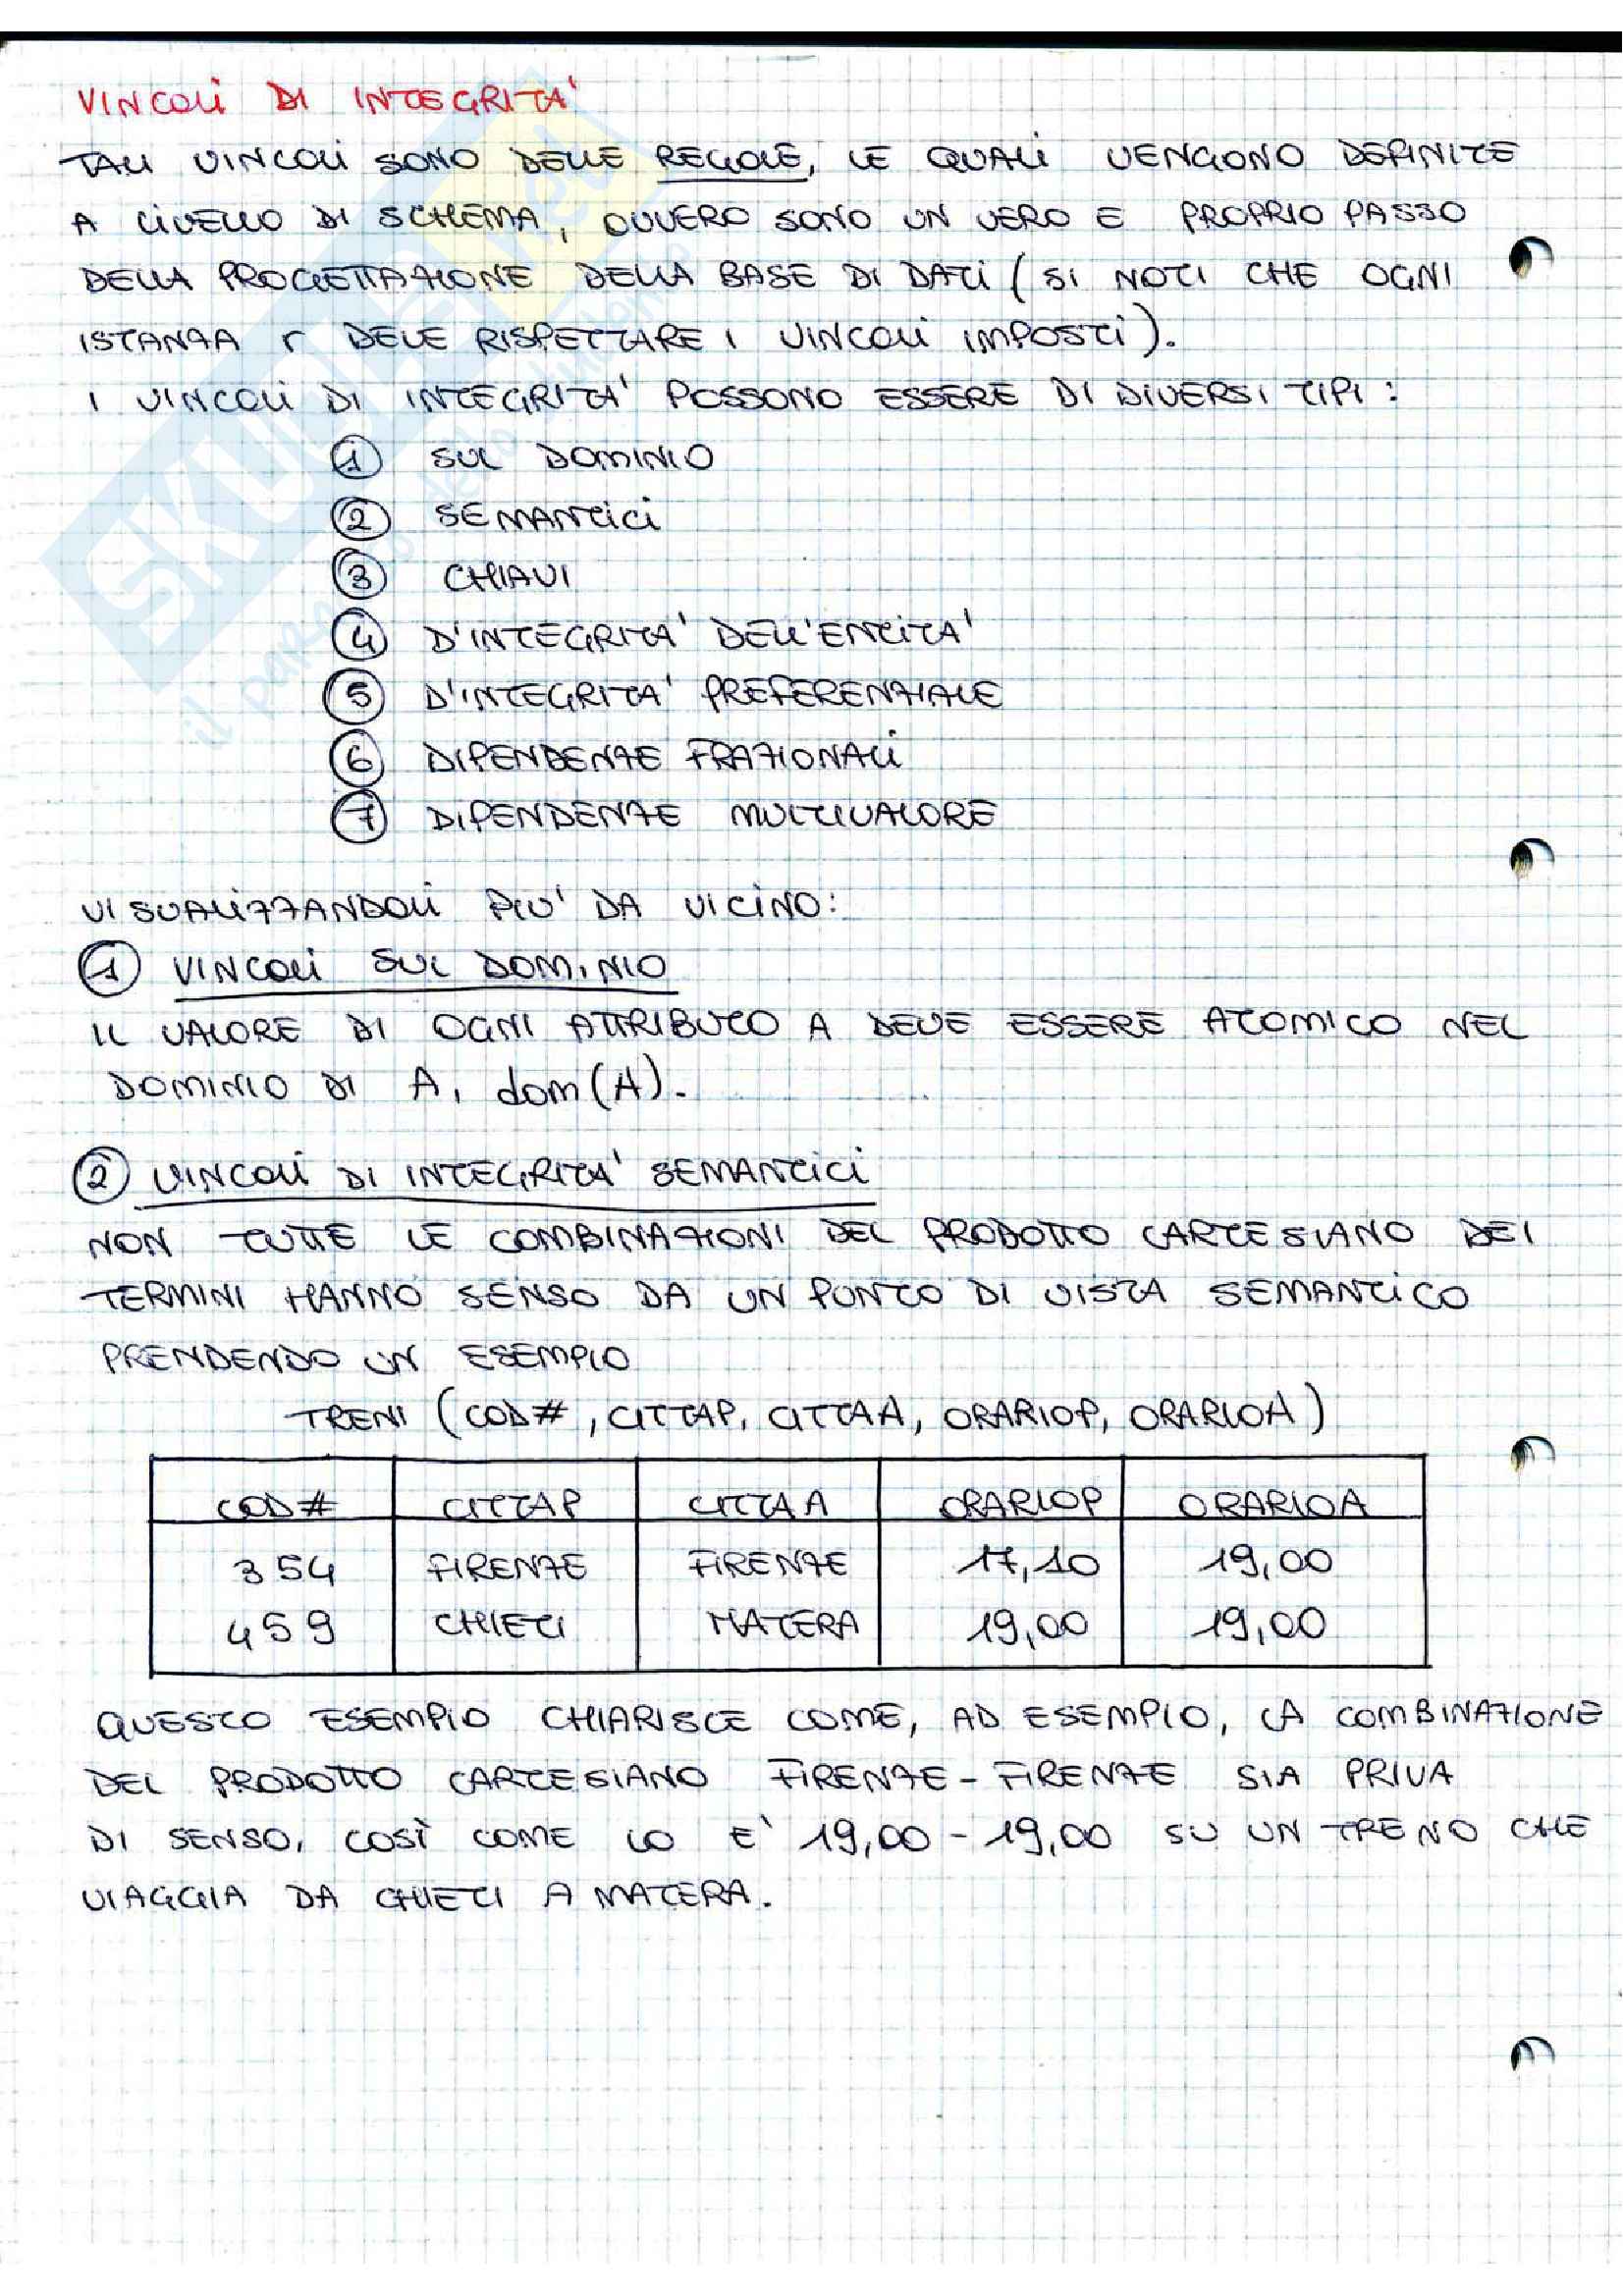 VINCOLI DI INTEGRITA'
TALI VINCOLI SONO DELLE REGOLE, LE QUALI VENGONO DEFINITE
A LIVELLO DI SCHEMA, OVVERO SONO UN VERO E PROPRIO PASSO
DELLA PROGETTAZIONE DELLA BASE DI DATI (SI NOTI CHE OGNI
ISTANZA r DEVE RISPETTARE I VINCOLI IMPOSTI).
I VINCOLI DI INTEGRITA' POSSONO ESSERE DI DIVERSI TIPI:
1 SUL DOMINIO
2 SEMANTICI
3 CHIAVI
4 D'INTEGRITA' DELL'ENTITA'
5 D'INTEGRITA' PREFERENZIALE
6 DIPENDENZE FRAZIONALI
7 DIPENDENZE MULTIVALORE
VISUALIZZANDOLI PIU' DA VICINO:
1 VINCOLI SUL DOMINIO
IL VALORE DI OGNI ATTRIBUTO A DEVE ESSERE ATOMICO NEL
DOMINIO DI A, dom(A).
2 VINCOLI DI INTEGRITA' SEMANTICI
NON TUTTE LE COMBINAZIONI DEL PRODOTTO CARTESIANO DEI
TERMINI HANNO SENSO DA UN PUNTO DI VISTA SEMANTICO
PRENDENDO UN ESEMPIO
TRENI (COD#, CITTAP, CITTAA, ORARIOP, ORARIOA)
COD# CITTAP CITTAA ORARIOP ORARIOA
354 FIRENZE FIRENZE 17,10 19,00
459 CHIETI MATERA 19,00 19,00
QUESTO ESEMPIO CHIARISCE COME, AD ESEMPIO, LA COMBINAZIONE
DEL PRODOTTO CARTESIANO FIRENZE-FIRENZE SIA PRIVA
DI SENSO, COSÌ COME LO E' 19,00-19,00 SU UN TRENO CHE
VIAGGIA DA CHIETI A MATERA.